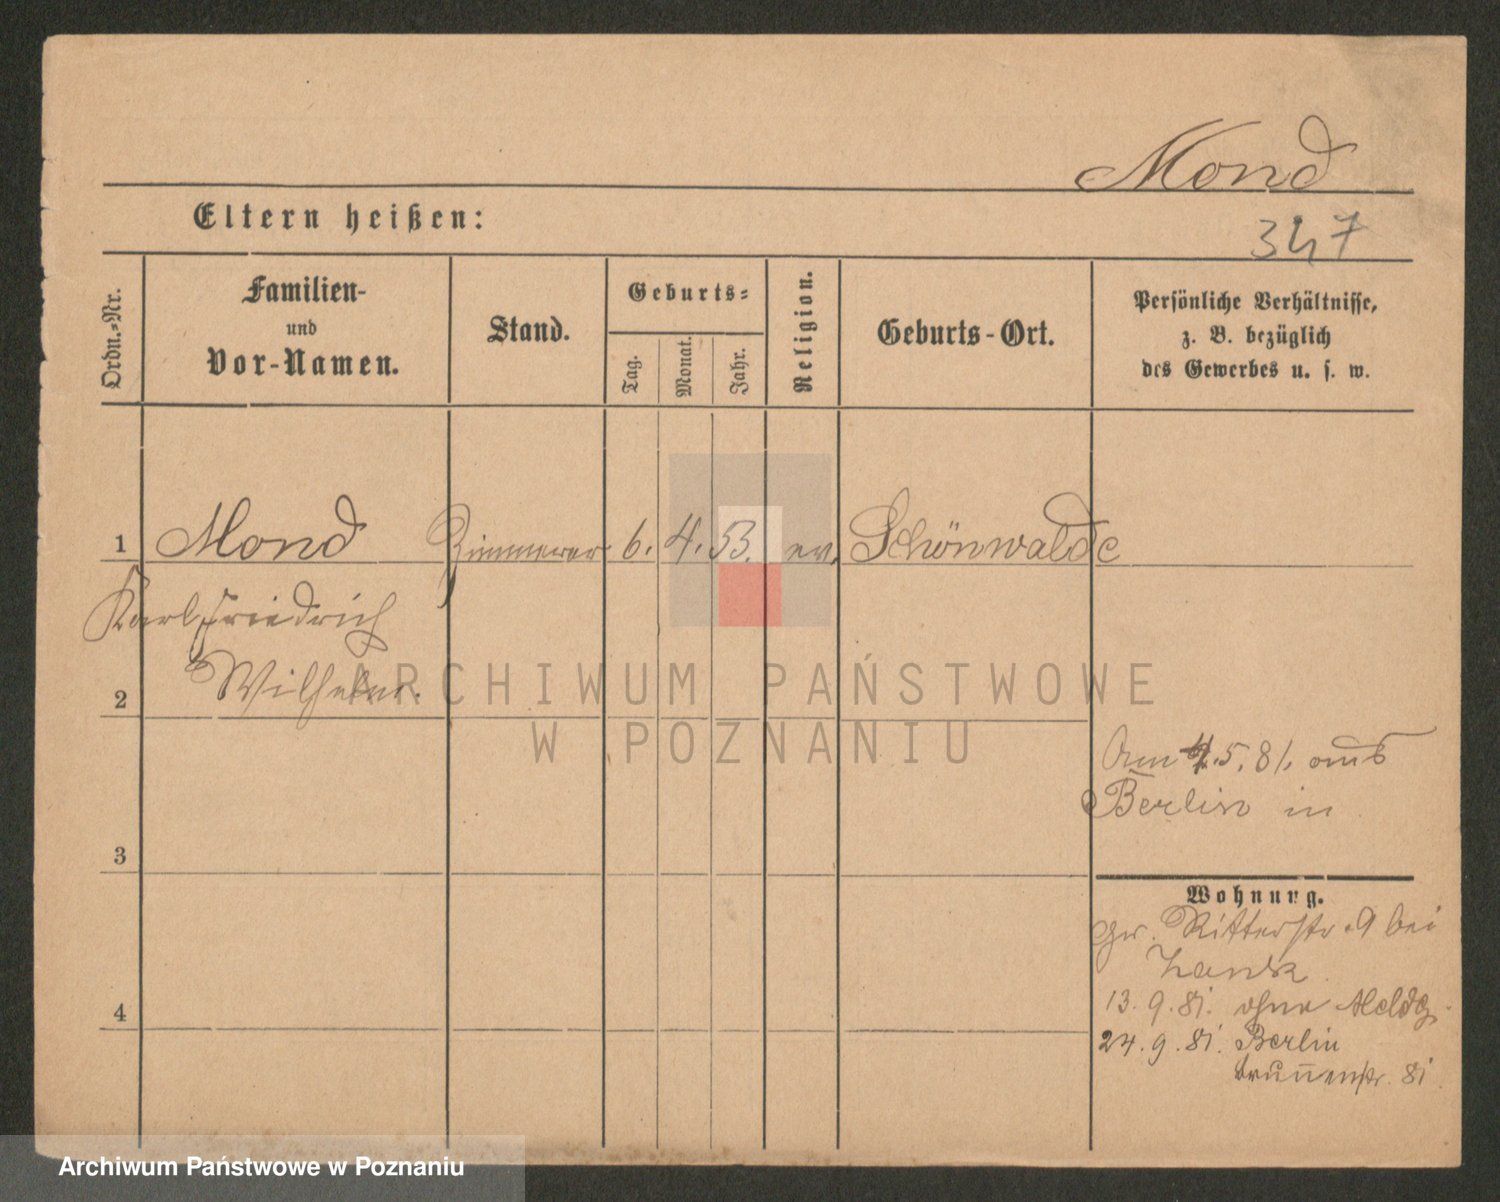 Mond
Eltern heißen:
347
Ordn.-Nr.
Familien-
und
Vor-Namen.
Stand.
Geburts-
Tag.
Monat.
Jahr.
Religion.
Geburts-Ort.
Persönliche Verhältnisse,
z. B. bezüglich
des Gewerbes u. s. w.
1 Mond Zimmerer 6. 4. 53. ev. Schönwalde
Karl Friedrich
2 Wilhelm.
ARCHIWUM PAŃSTWOWE
W POZNANIU
Am 4.5.81. aus
Berlin in
3
Wohnung.
gr. Ritterstr. 9 bei
4
13. 9. 81. ohne Meldg.
24. 9. 81. Berlin
Brunnenstr. 81
Archiwum Państwowe w Poznaniu